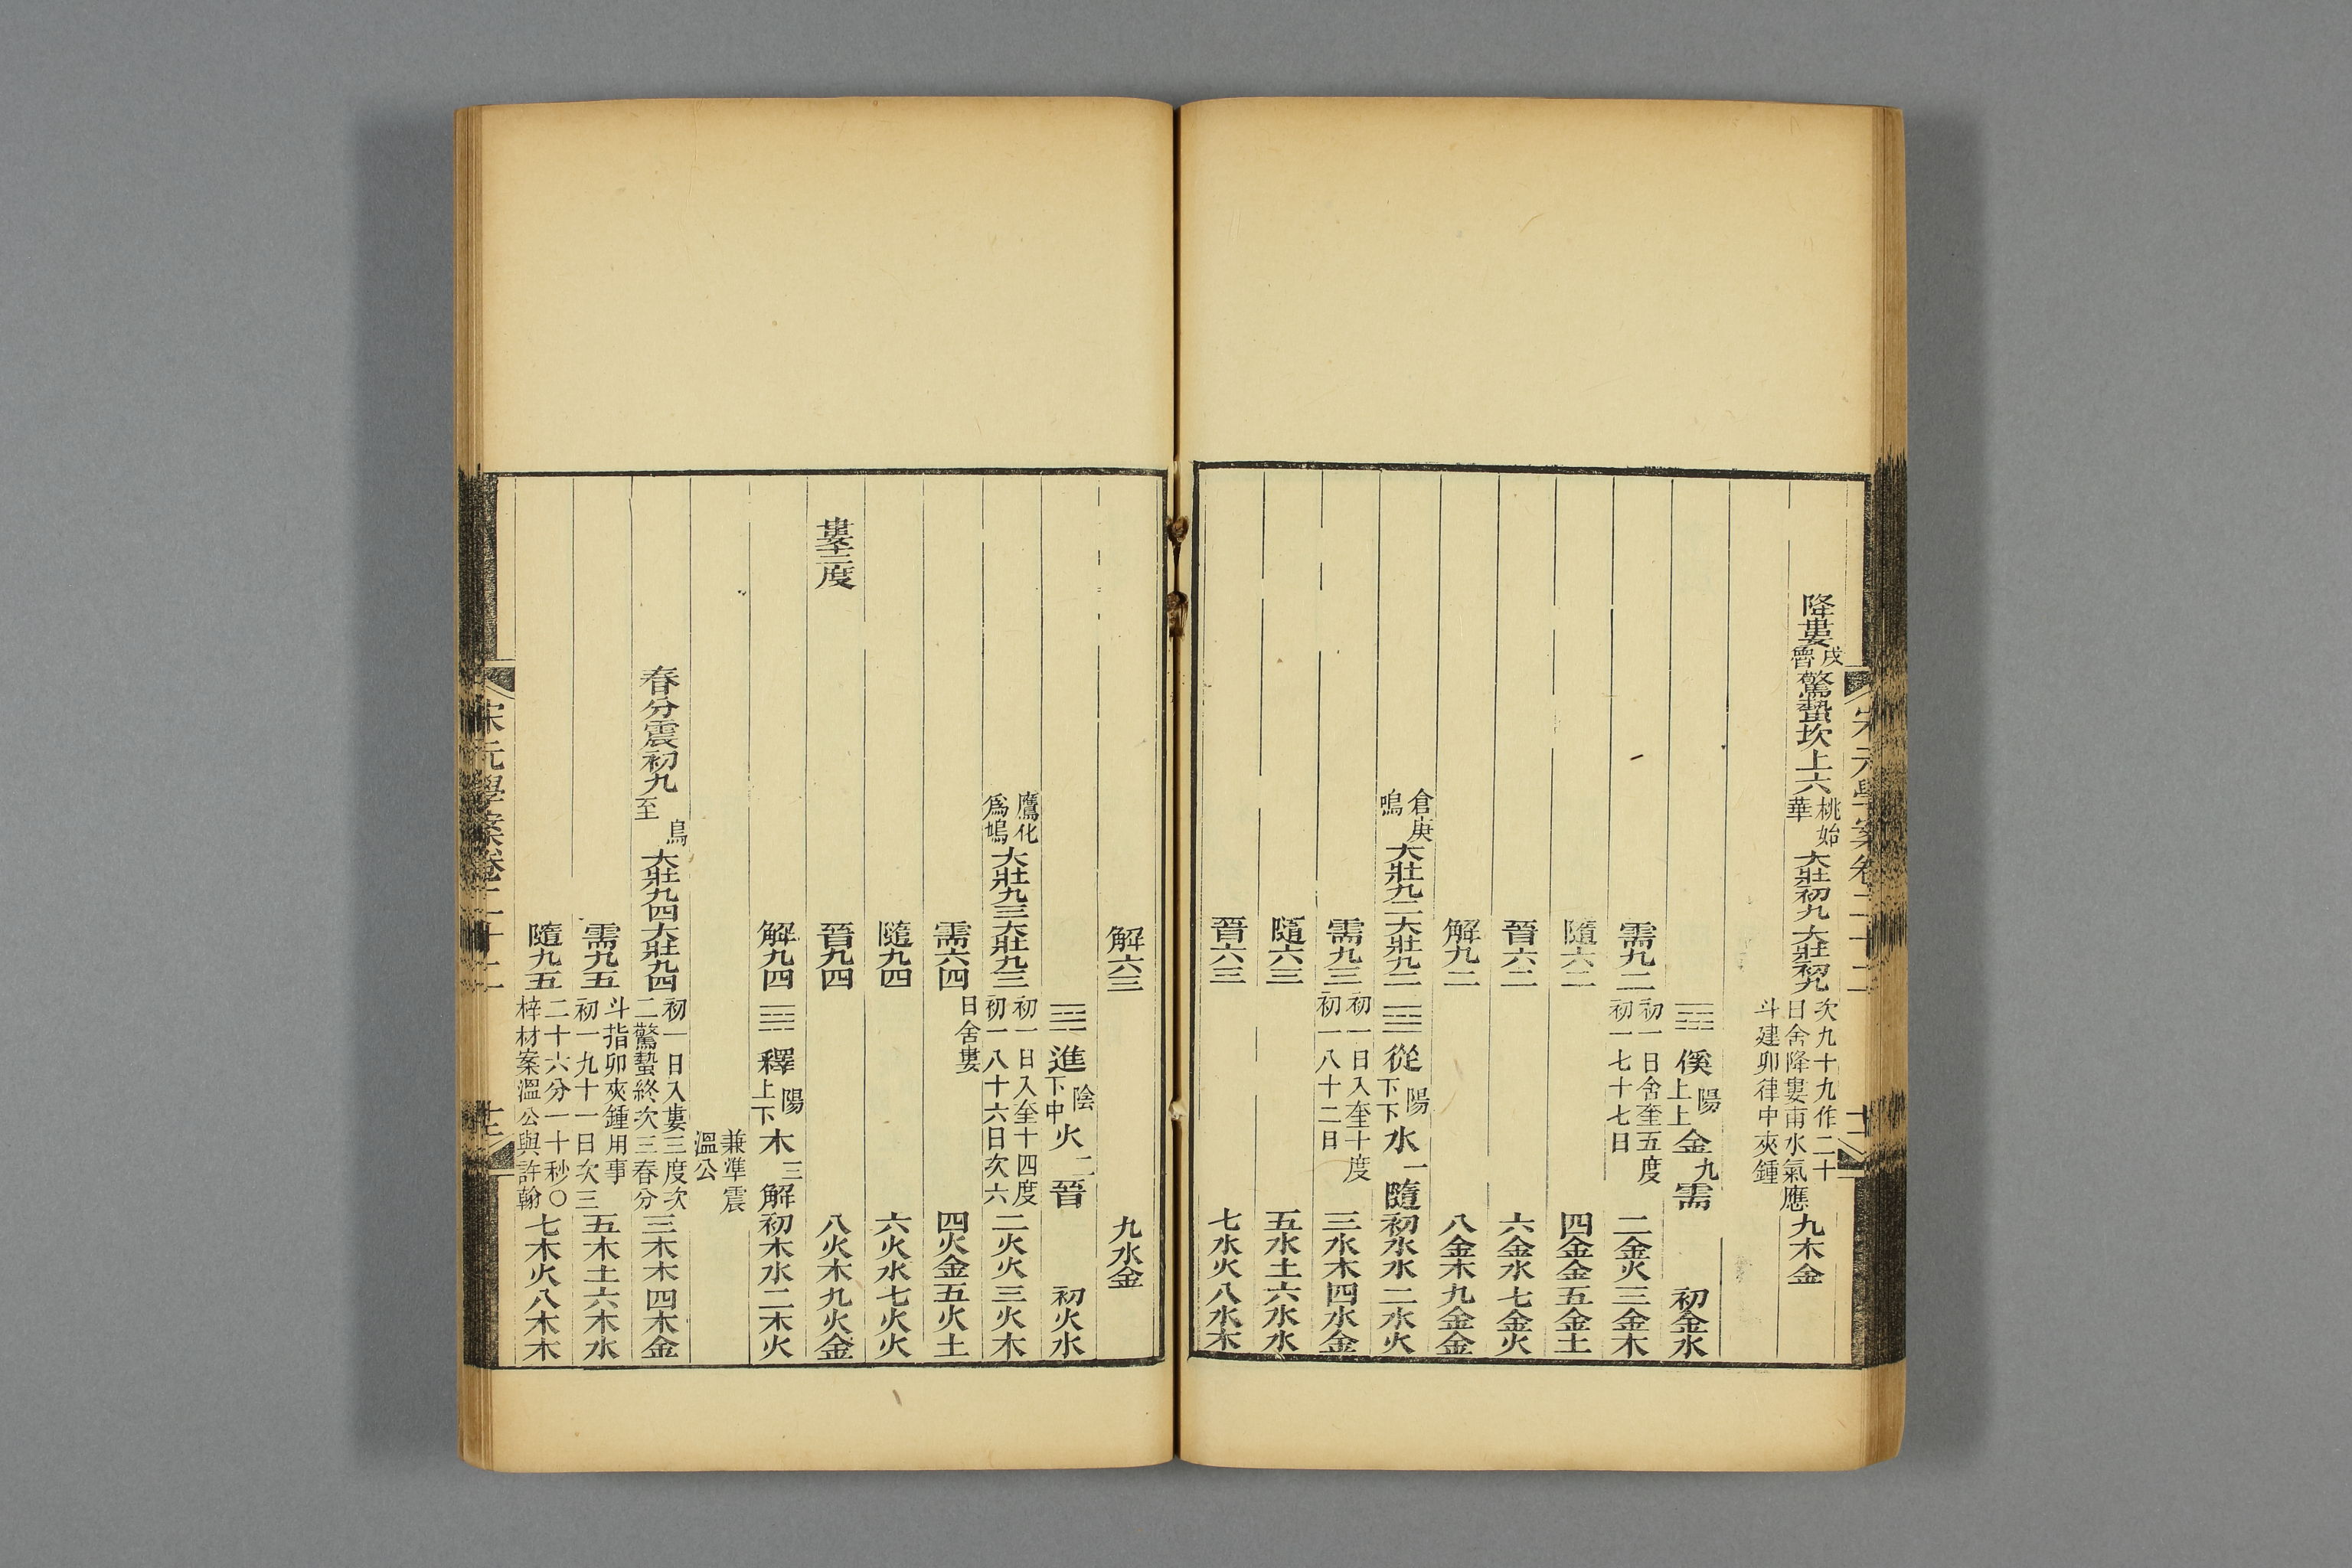 降婁戌魯驚蟄坎上六桃始華大壯初九大壯初九次九十九作二十日舍降婁雨水氣應斗建卯律中夾鍾九木金
𝌎傒陽上上金九需初金水
需九二初一日舍奎五度初一七十七日二金火三金木
隨六二四金金五金土
晉六二六金水七金火
解九二八金木九金金
倉庚鳴大壯九二大壯九二𝌏從陽下下水一隨初水水二水火
需九三初一日入奎十度初一八十二日三水木四水金
隨六三五水土六水水
晉六三七水火八水木
解六三九水金
𝌐進陰下中火二晉初火水
鷹化為鳩大壯九三大壯九三初一日入奎十四度初一八十六日次六日舍婁二火火三火木
需六四四火金五火土
隨九四六火水七火火
婁三度晉九四八火木九火金
解九四𝌑釋陽上下木三解初木水二木火
兼準震溫公
春分震初九鳥至大壯九四大壯九四初一日入婁三度次二驚蟄終次三春分三木木四木金
需九五斗指卯夾鍾用事初一九十一日次三五木土六木水
隨九五二十六分一十秒〇梓材案溫公與許翰七木火八木木
宋元學案卷二十二